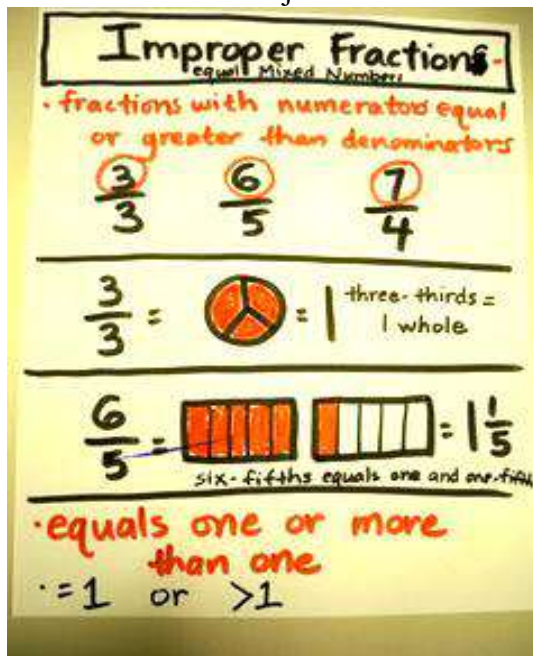 Improper Fractions
equal Mixed Numbers
• fractions with numerators equal
or greater than denominators
3/3 6/5 7/4
3/3 = = 1 three-thirds =
1 whole
6/5 = = 1 1/5
six-fifths equals one and one-fifth
• equals one or more
than one
• = 1 or >1